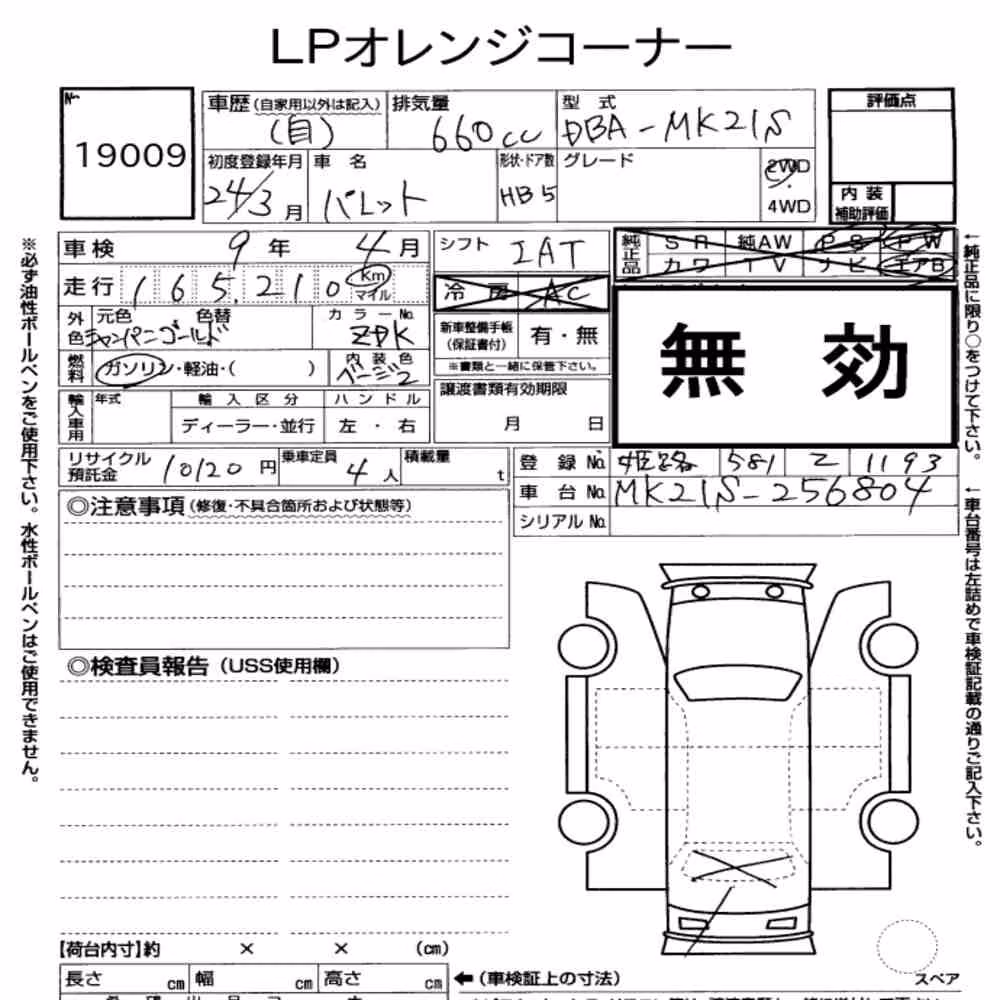 LPオレンジコーナー
No. 19009
車歴 (自家用以外は記入) (自)
排気量 660cc
型式 DBA-MK21S
評価点
初度登録年月 24/3月
車名 パレット
形状・ドア数 HB5
グレード
2WD
4WD
内装補助評価
車検 9年 4月
シフト IAT
純正品 SR 純AW PS PW
カワ TV ナビ エアB
走行 165,210 Km マイル
冷房 AC
外色 元色 色替 シャンパンゴールド
カラーNo. ZPK
新車整備手帳 (保証書付) 有・無
※書類と一緒に保管下さい。
無効
燃料 ガソリン・軽油・( )
内装色 ベージュ
譲渡書類有効期限 月 日
輸入車用 年式 輸入区分 ハンドル
ディーラー・並行 左・右
リサイクル預託金 10120円
乗車定員 4人
積載量 t
登録No. 姫路 581 Z 1193
車台No. MK21S-256804
シリアルNo.
◎注意事項 (修復・不具合箇所および状態等)
◎検査員報告 (USS使用欄)
【荷台内寸】約 × × (cm)
長さ cm 幅 cm 高さ cm
←(車検証上の寸法)
スペア
※必ず油性ボールペンをご使用下さい。水性ボールペンはご使用できません。
←純正品に限り○をつけて下さい。
←車台番号は左詰めで車検証記載の通りご記入下さい。